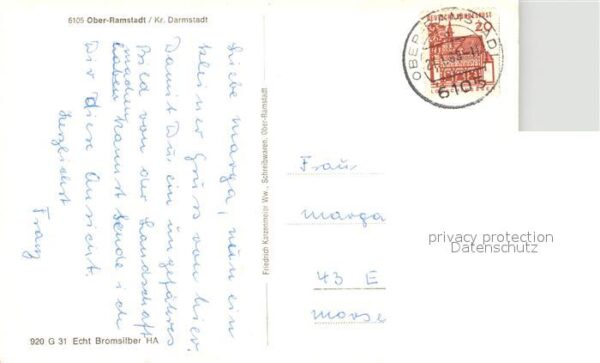 6105 Ober-Ramstadt / Kr. Darmstadt
Liebe Marga, nun ein
kleiner Gruss von hier.
Damit Du ein ungefähres
Bild von der Landschaft
machen kannst sende ich
Dir diese Ansicht.
Herzlichst
Franz
920 G 31 Echt Bromsilber HA
Friedrich Karzenmeier Ww., Schreibwaren, Ober-Ramstadt
DEUTSCHE BUNDESPOST
20
OBER-RAMSTADT
6105
Frau
Marga
43 E
privacy protection
Datenschutz